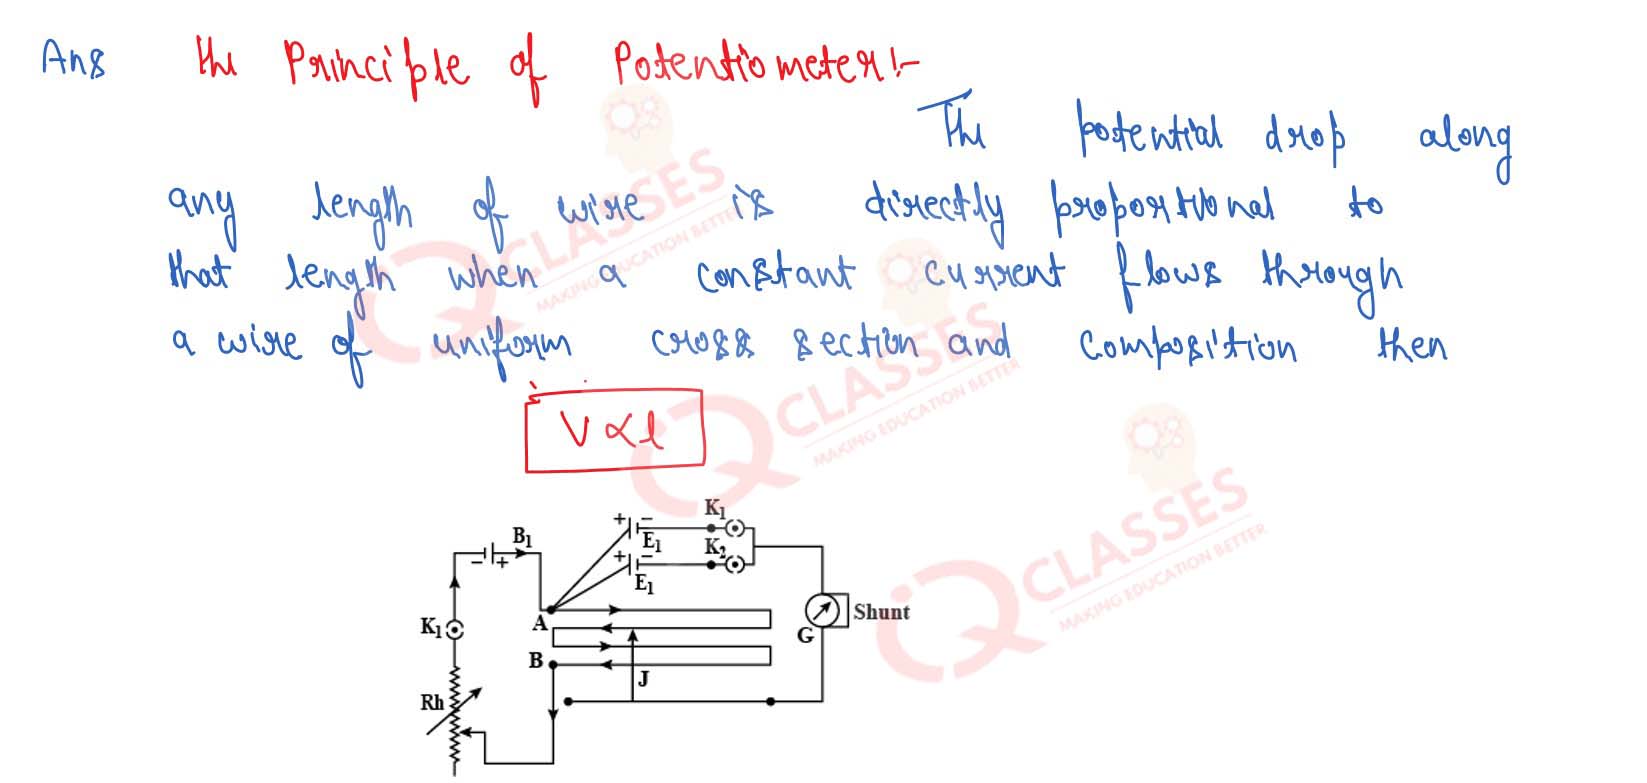 Ans the Principle of Potentiometer:-
The potential drop along
any length of wire is directly proportional to
that length when a constant current flows through
a wire of uniform cross section and composition then
V ∝ l
K1
B1
E1
K2
E1
A
Shunt
K1
G
B
J
Rh
IQ CLASSES
MAKING EDUCATION BETTER
IQ CLASSES
MAKING EDUCATION BETTER
IQ CLASSES
MAKING EDUCATION BETTER